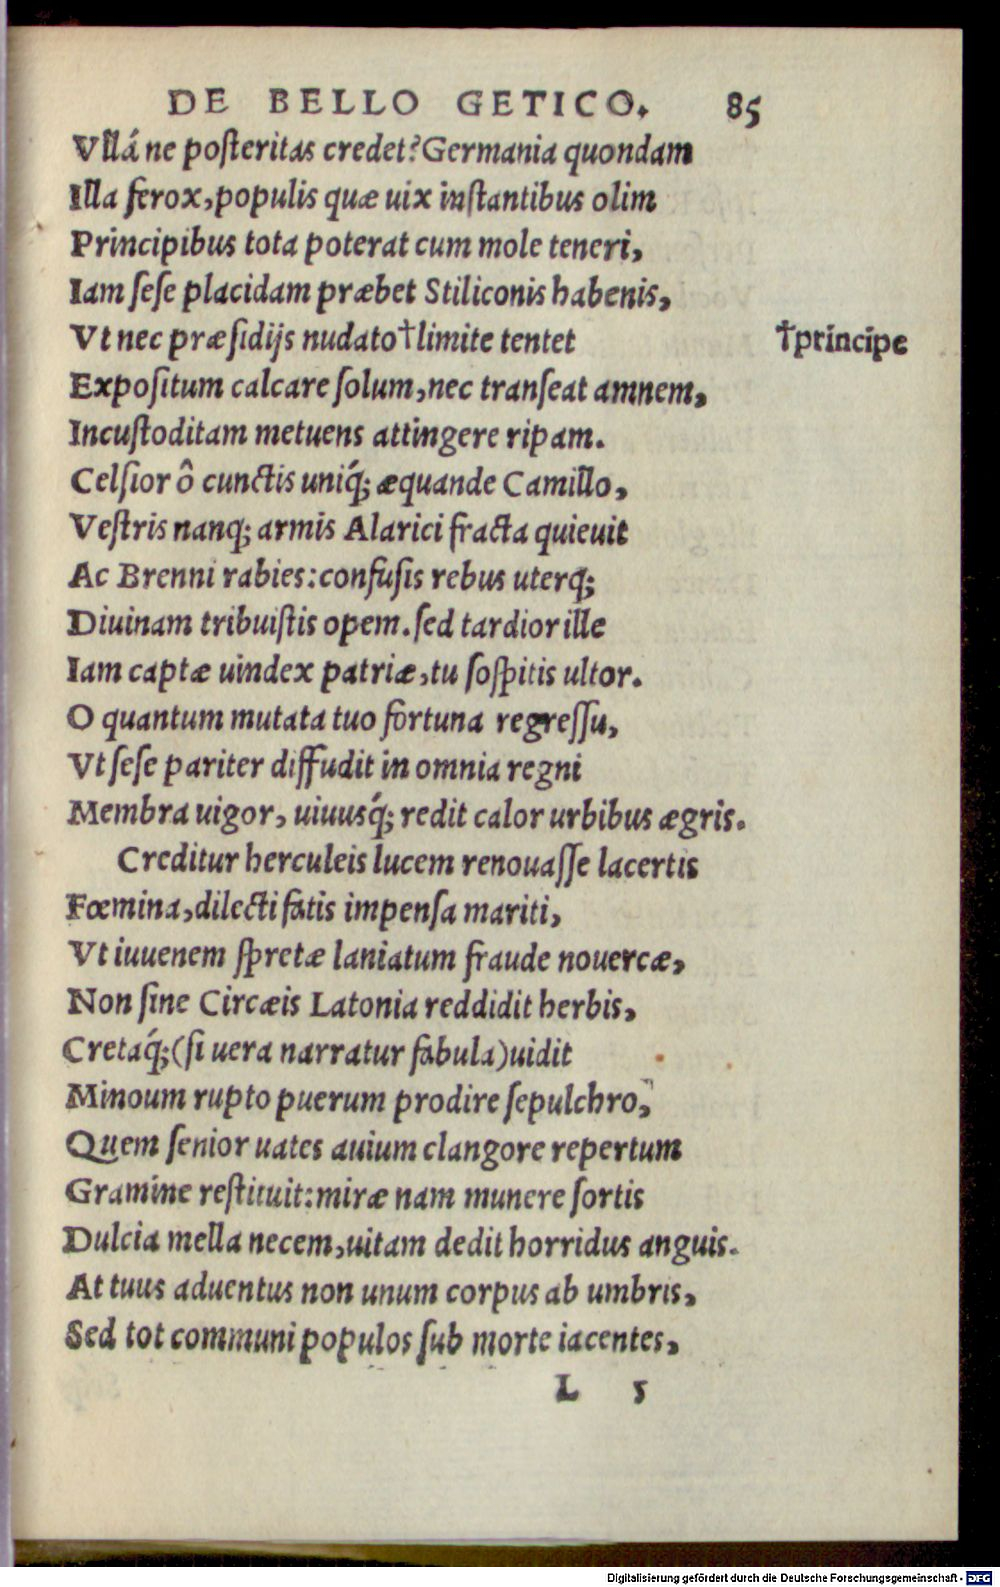 DE BELLO GETICO. 85
Vllá ne posteritas credet? Germania quondam
Illa ferox, populis quæ uix instantibus olim
Principibus tota poterat cum mole teneri,
Iam sese placidam præbet Stiliconis habenis,
Vt nec præsidijs nudato †limite tentet †principe
Expositum calcare solum, nec transeat amnem,
Incustoditam metuens attingere ripam.
Celsior ô cunctis uniq́; æquande Camillo,
Vestris nanq; armis Alarici fracta quieuit
Ac Brenni rabies: confusis rebus uterq;
Diuinam tribuistis opem. sed tardior ille
Iam captæ uindex patriæ, tu sospitis ultor.
O quantum mutata tuo fortuna regressu,
Vt sese pariter diffudit in omnia regni
Membra uigor, uiuusq́; redit calor urbibus ægris.
Creditur herculeis lucem renouasse lacertis
Fœmina, dilecti fatis impensa mariti,
Vt iuuenem spretæ laniatum fraude nouercæ,
Non sine Circæis Latonia reddidit herbis,
Cretaq́; (si uera narratur fabula) uidit
Minoum rupto puerum prodire sepulchro,
Quem senior uates auium clangore repertum
Gramine restituit: miræ nam munere sortis
Dulcia mella necem, uitam dedit horridus anguis.
At tuus aduentus non unum corpus ab umbris,
Sed tot communi populos sub morte iacentes,
L 5
Digitalisierung gefördert durch die Deutsche Forschungsgemeinschaft - DFG